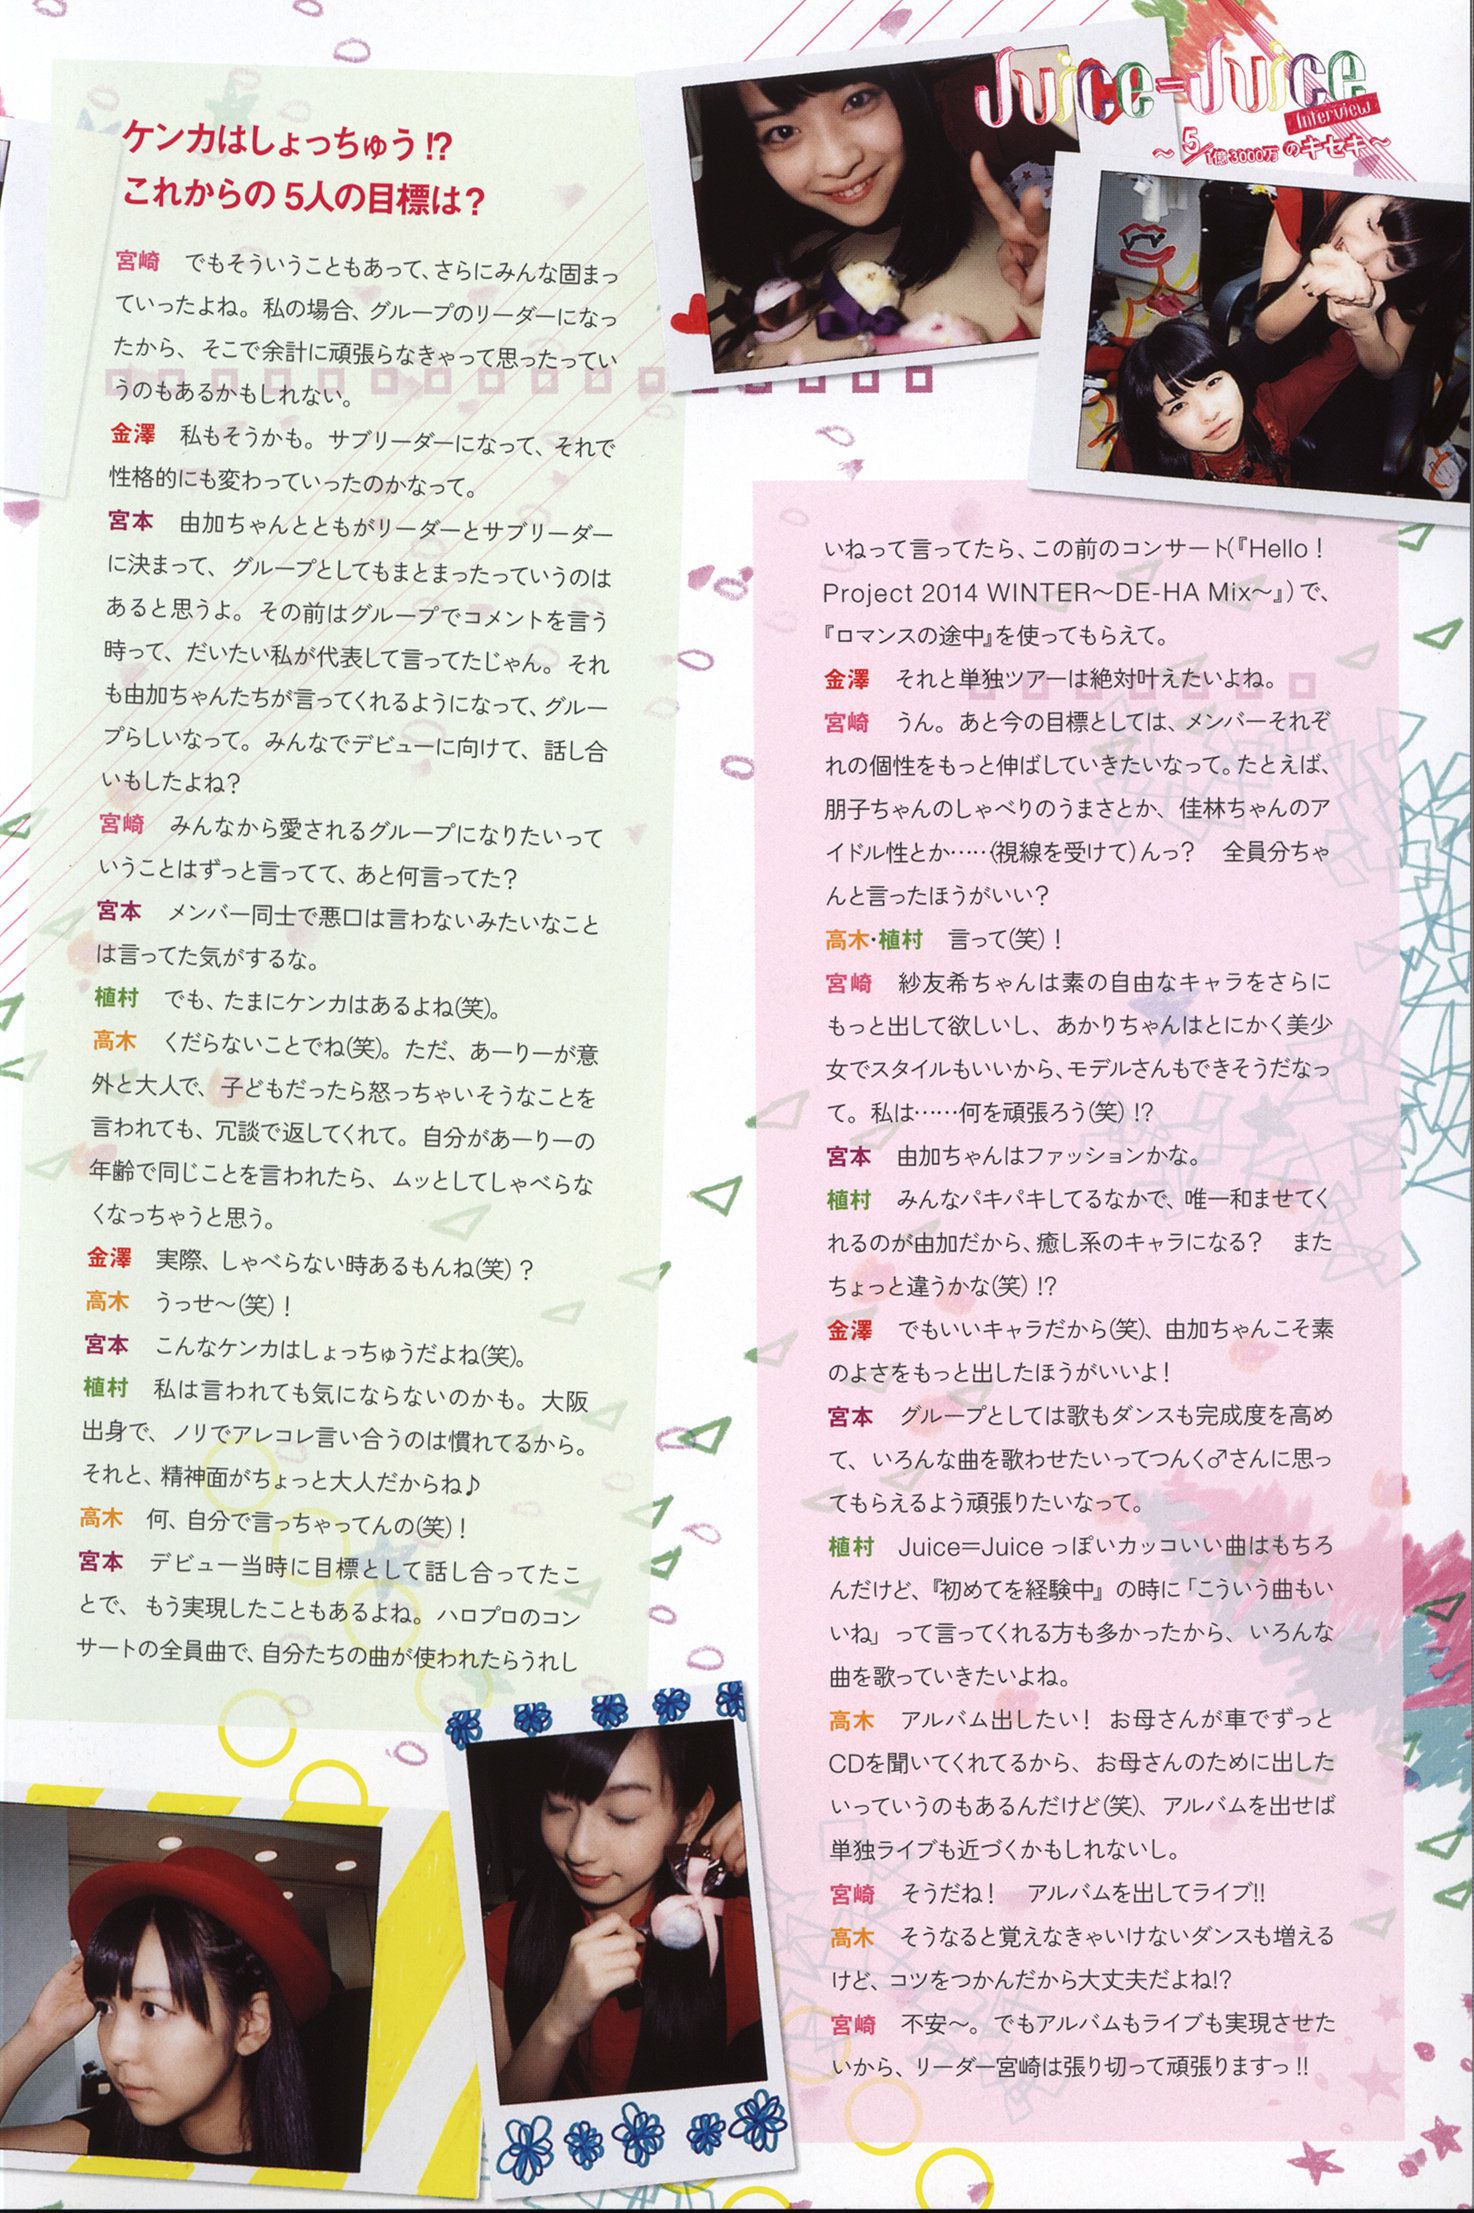 Juice=Juice
Interview
～5/1億3000万のキセキ～
ケンカはしょっちゅう!?
これからの5人の目標は?
宮崎　でもそういうこともあって、さらにみんな固まっ
ていったよね。私の場合、グループのリーダーになっ
たから、そこで余計に頑張らなきゃって思ったってい
うのもあるかもしれない。
金澤　私もそうかも。サブリーダーになって、それで
性格的にも変わっていったのかなって。
宮本　由加ちゃんとともがリーダーとサブリーダー
に決まって、グループとしてもまとまったっていうのは
あると思うよ。その前はグループでコメントを言う
時って、だいたい私が代表して言ってたじゃん。それ
も由加ちゃんたちが言ってくれるようになって、グルー
プらしいなって。みんなでデビューに向けて、話し合
いもしたよね?
宮崎　みんなから愛されるグループになりたいって
いうことはずっと言ってて、あと何言ってた?
宮本　メンバー同士で悪口は言わないみたいなこと
は言ってた気がするな。
植村　でも、たまにケンカはあるよね(笑)。
高木　くだらないことでね(笑)。ただ、あーりーが意
外と大人で、子どもだったら怒っちゃいそうなことを
言われても、冗談で返してくれて。自分があーりーの
年齢で同じことを言われたら、ムッとしてしゃべらな
くなっちゃうと思う。
金澤　実際、しゃべらない時あるもんね(笑)?
高木　うっせ〜(笑)!
宮本　こんなケンカはしょっちゅうだよね(笑)。
植村　私は言われても気にならないのかも。大阪
出身で、ノリでアレコレ言い合うのは慣れてるから。
それと、精神面がちょっと大人だからね♪
高木　何、自分で言っちゃってんの(笑)!
宮本　デビュー当時に目標として話し合ってたこ
とで、もう実現したこともあるよね。ハロプロのコン
サートの全員曲で、自分たちの曲が使われたらうれし
いねって言ってたら、この前のコンサート(『Hello!
Project 2014 WINTER〜DE-HA Mix〜』)で、
『ロマンスの途中』を使ってもらえて。
金澤　それと単独ツアーは絶対叶えたいよね。
宮崎　うん。あと今の目標としては、メンバーそれぞ
れの個性をもっと伸ばしていきたいなって。たとえば、
朋子ちゃんのしゃべりのうまさとか、佳林ちゃんのア
イドル性とか……(視線を受けて)んっ?　全員分ちゃ
んと言ったほうがいい?
高木・植村　言って(笑)!
宮崎　紗友希ちゃんは素の自由なキャラをさらに
もっと出して欲しいし、あかりちゃんはとにかく美少
女でスタイルもいいから、モデルさんもできそうだなっ
て。私は……何を頑張ろう(笑)!?
宮本　由加ちゃんはファッションかな。
植村　みんなパキパキしてるなかで、唯一和ませてく
れるのが由加だから、癒し系のキャラになる?　また
ちょっと違うかな(笑)!?
金澤　でもいいキャラだから(笑)、由加ちゃんこそ素
のよさをもっと出したほうがいいよ!
宮本　グループとしては歌もダンスも完成度を高め
て、いろんな曲を歌わせたいってつんく♂さんに思っ
てもらえるよう頑張りたいなって。
植村　Juice=Juiceっぽいカッコいい曲はもちろ
んだけど、『初めてを経験中』の時に「こういう曲もい
いね」って言ってくれる方も多かったから、いろんな
曲を歌っていきたいよね。
高木　アルバム出したい! お母さんが車でずっと
CDを聞いてくれてるから、お母さんのために出した
いっていうのもあるんだけど(笑)、アルバムを出せば
単独ライブも近づくかもしれないし。
宮崎　そうだね!　アルバムを出してライブ!!
高木　そうなると覚えなきゃいけないダンスも増える
けど、コツをつかんだから大丈夫だよね!?
宮崎　不安〜。でもアルバムもライブも実現させた
いから、リーダー宮崎は張り切って頑張りますっ!!